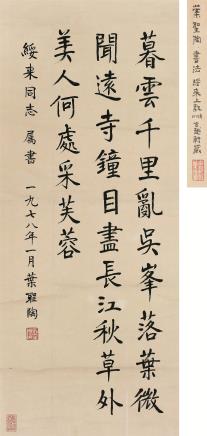 暮雲千里亂吳峯落葉微
聞遠寺鐘目盡長江秋草外
美人何處采芙蓉
綏來同志 屬書 一九七八年一月葉聖陶
葉聖陶 書法